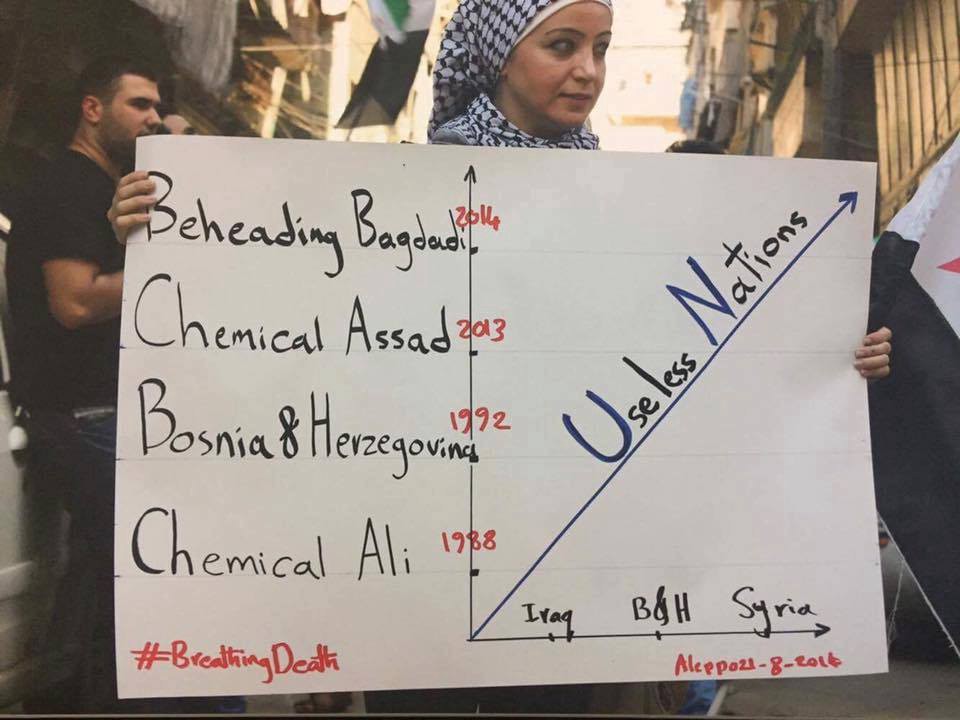 Beheading Bagdadi 2014
Chemical Assad 2013
Bosnia & Herzegovina 1992
Chemical Ali 1988
Useless Nations
Iraq B&H Syria
#BreathingDeath
Aleppo21-8-2014